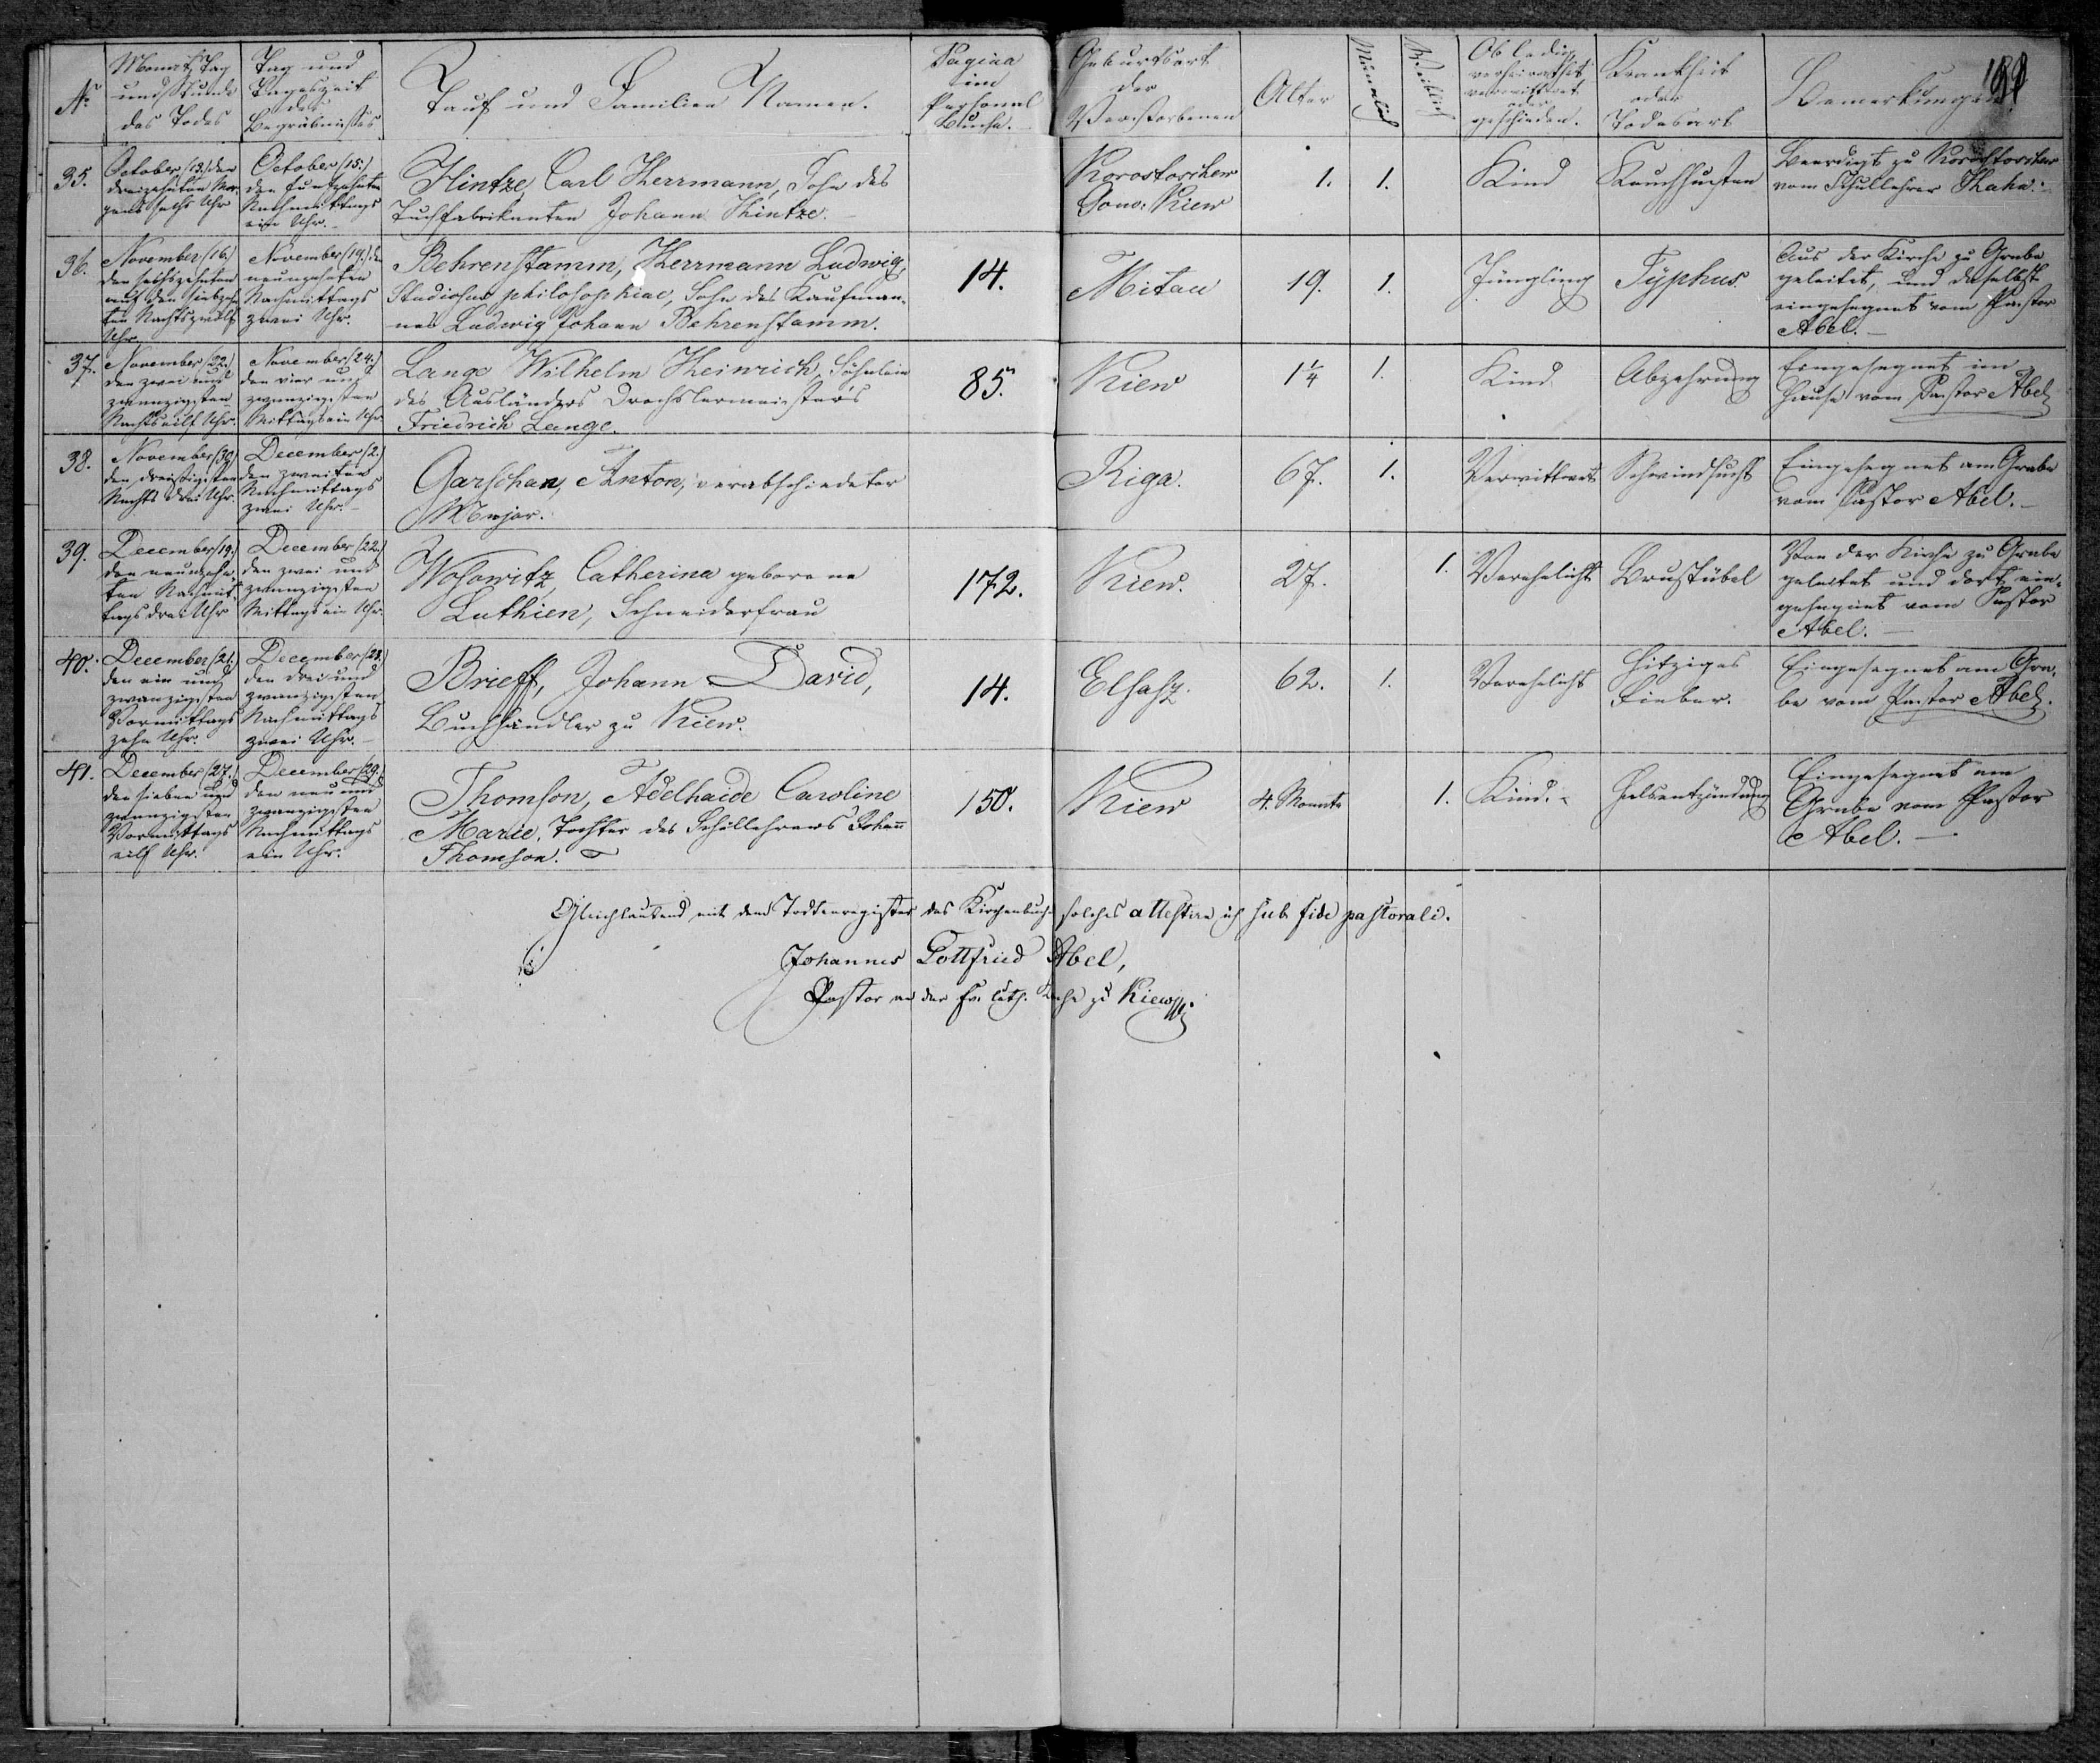 No
Monat, Tag
und Stunde
des Todes
Tag und
Tageszeit
des
Begräbnisses
Tauf und Familien Namen.
Pagina
im
Personal
Buche.
Geburtsort
der
Verstorbenen
Alter
Männlich
Weiblich
Ob ledig
verheirathet,
verwittwet
oder
geschieden.
Krankheit
oder
Todesart
Bemerkungen
35.
October (13.) den
dreizehnten Mor-
gens sechs Uhr
October (15.)
den funfzehnten
Nachmittags
ein Uhr.
Hintze, Carl Herrmann, Sohn des
Tuchfabrikanten Johann Hintze.
Korostoschew
Gouv: Kiew
1.
1.
Kind
Keuchhusten
Beerdigt zu Korostoschew
vom Schullehrer
36.
November (16.)
den sechszehnten
auf den siebzehn-
ten Nachts zwölf
Uhr.
November (19.) den
neunzehnten
Nachmittags
zwei Uhr.
Behrenstamm, Herrmann Ludwig,
Studiosus philosophiae, Sohn des Kaufman-
nes Ludwig Johann Behrenstamm.
14.
Mitau
19.
1.
Jüngling
Typhus
Aus der Kirche zu Grabe
geleitet, und daselbst
eingesegnet vom Pastor
Abel.
37.
November (22.)
den zwei und
zwanzigsten
Nachts eilf Uhr.
November (24.)
den vier und
zwanzigsten
Mittags ein Uhr
Lange Wilhelm Heinrich, Söhnlein
des Ausländers Drechslermeisters
Friedrich Lange.
85.
Kiew
1 1/4
1.
Kind
Abzehrung
Eingesegnet im
Hause vom Pastor Abel
38.
November (30.)
den dreißigsten
Nachts drei Uhr.
December (2.)
den zweiten
Nachmittags
zwei Uhr.
Garschan, Anton, verabschiedeter
Major.
Riga.
67.
1.
Verwittwet
Schwindsucht
Eingesegnet am Grabe
vom Pastor Abel.
39.
December (19.)
den neunzehn-
ten Nachmit-
tags drei Uhr
December (22.)
den zwei und
zwanzigsten
Mittags ein Uhr.
Wosowitz, Catherina geborene
Luthien, Schneiderfrau
172.
Kiew.
27.
1.
Verehelicht
Brustübel
Von der Kirche zu Grabe
geleitet und dort ein-
gesegnet vom Pastor
Abel.
40.
December (21.)
den ein und
zwanzigsten
Vormittags
zehn Uhr.
December (23.)
den drei und
zwanzigsten
Nachmittags
zwei Uhr.
Brieff, Johann David,
Buchhändler zu Kiew.
14.
Elsasz.
62.
1.
Verehelicht
Hitziges
Fieber.
Eingesegnet am Gra-
be vom Pastor Abel.
41.
December (27.)
den sieben und
zwanzigsten
Vormittags
eilf Uhr.
December (29.)
den neun und
zwanzigsten
Nachmittags
ein Uhr.
Thomson, Adelhaide Caroline
Marie, Tochter des Schullehrers Johann
Thomson.
150.
Kiew
4. Monate
1.
Kind.
Halsentzündung
Eingesegnet am
Grabe vom Pastor
Abel.
Gleichlautend mit dem Todtenregister des Kirchenbuchs solches attestire ich sub fide pastorali.
Johannes Gottfried Abel,
Pastor an der Ev. luth. Kirche zu Kiew.